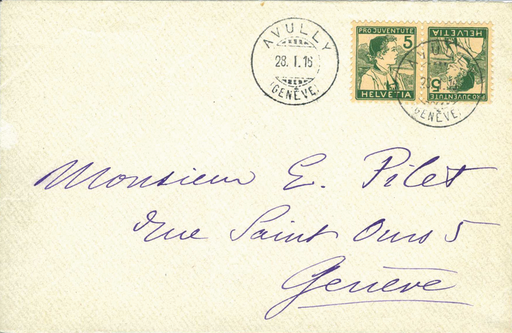 AVULLY
28. I. 16
(GENÈVE)
PRO JUVENTUTE 5
HELVETIA
HELVETIA
5
PRO JUVENTUTE
AVULLY
(GENÈVE)
Monsieur E. Pilet
rue Saint Ours 5
Genève